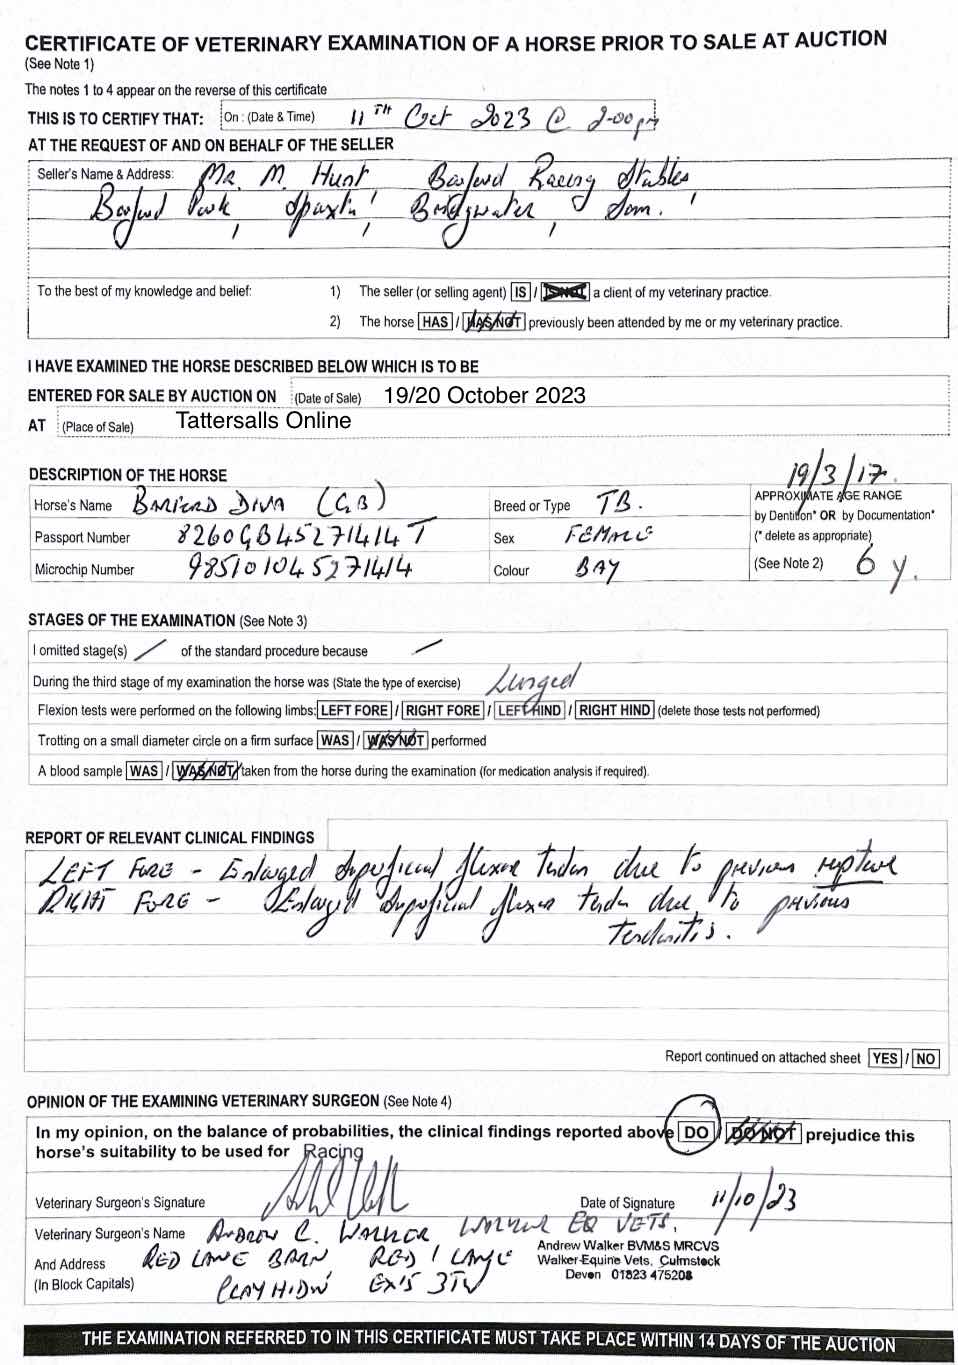 CERTIFICATE OF VETERINARY EXAMINATION OF A HORSE PRIOR TO SALE AT AUCTION
(See Note 1)
The notes 1 to 4 appear on the reverse of this certificate
THIS IS TO CERTIFY THAT: On : (Date & Time) 11TH Oct 2023 @ 2-00pm
AT THE REQUEST OF AND ON BEHALF OF THE SELLER
Seller's Name & Address: Mr. M. Hunt Barford Racing Stables
Barford Park, Spaxton, Bridgwater, Som.
To the best of my knowledge and belief: 1) The seller (or selling agent) IS / IS NOT a client of my veterinary practice.
2) The horse HAS / HAS NOT previously been attended by me or my veterinary practice.
I HAVE EXAMINED THE HORSE DESCRIBED BELOW WHICH IS TO BE
ENTERED FOR SALE BY AUCTION ON (Date of Sale) 19/20 October 2023
AT (Place of Sale) Tattersalls Online
19/3/17.
DESCRIPTION OF THE HORSE
Horse's Name BARFORD DIVA (GB) Breed or Type TB. APPROXIMATE AGE RANGE
by Dentition* OR by Documentation*
Passport Number 8260GB45271414T Sex FEMALE (* delete as appropriate)
Microchip Number 985101045271414 Colour BAY (See Note 2) 6 y.
STAGES OF THE EXAMINATION (See Note 3)
I omitted stage(s) / of the standard procedure because /
During the third stage of my examination the horse was (State the type of exercise) Lunged
Flexion tests were performed on the following limbs: LEFT FORE / RIGHT FORE / LEFT HIND / RIGHT HIND (delete those tests not performed)
Trotting on a small diameter circle on a firm surface WAS / WAS NOT performed
A blood sample WAS / WAS NOT taken from the horse during the examination (for medication analysis if required).
REPORT OF RELEVANT CLINICAL FINDINGS
LEFT FORE - Enlarged superficial flexor tendon due to previous rupture
RIGHT FORE - Enlarged superficial flexor tendon due to previous
tendonitis.
Report continued on attached sheet YES / NO
OPINION OF THE EXAMINING VETERINARY SURGEON (See Note 4)
In my opinion, on the balance of probabilities, the clinical findings reported above DO / DO NOT prejudice this
horse's suitability to be used for Racing
Veterinary Surgeon's Signature Date of Signature 11/10/23
Veterinary Surgeon's Name ANDREW C. WALKER WALKER EQ VETS.
And Address RED LANE BARN RED LANE
(In Block Capitals) CLAYHIDON EX15 3TW
Andrew Walker BVM&S MRCVS
Walker-Equine Vets, Culmstock
Devon 01823 475208
THE EXAMINATION REFERRED TO IN THIS CERTIFICATE MUST TAKE PLACE WITHIN 14 DAYS OF THE AUCTION